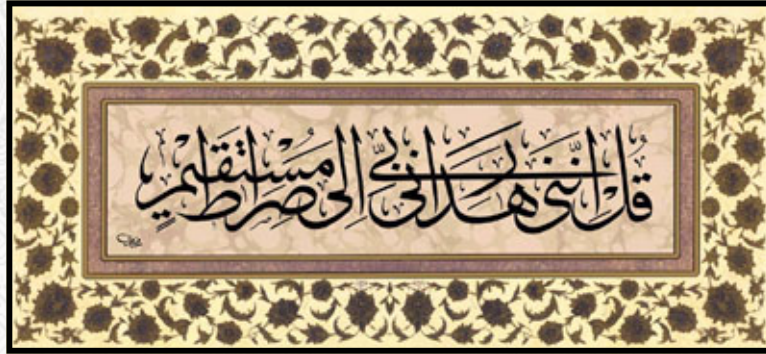 قُلْ اِنَّنِى هَدَانِى رَبِّى اِلَى صِرَاطٍ مُسْتَقِيمٍ